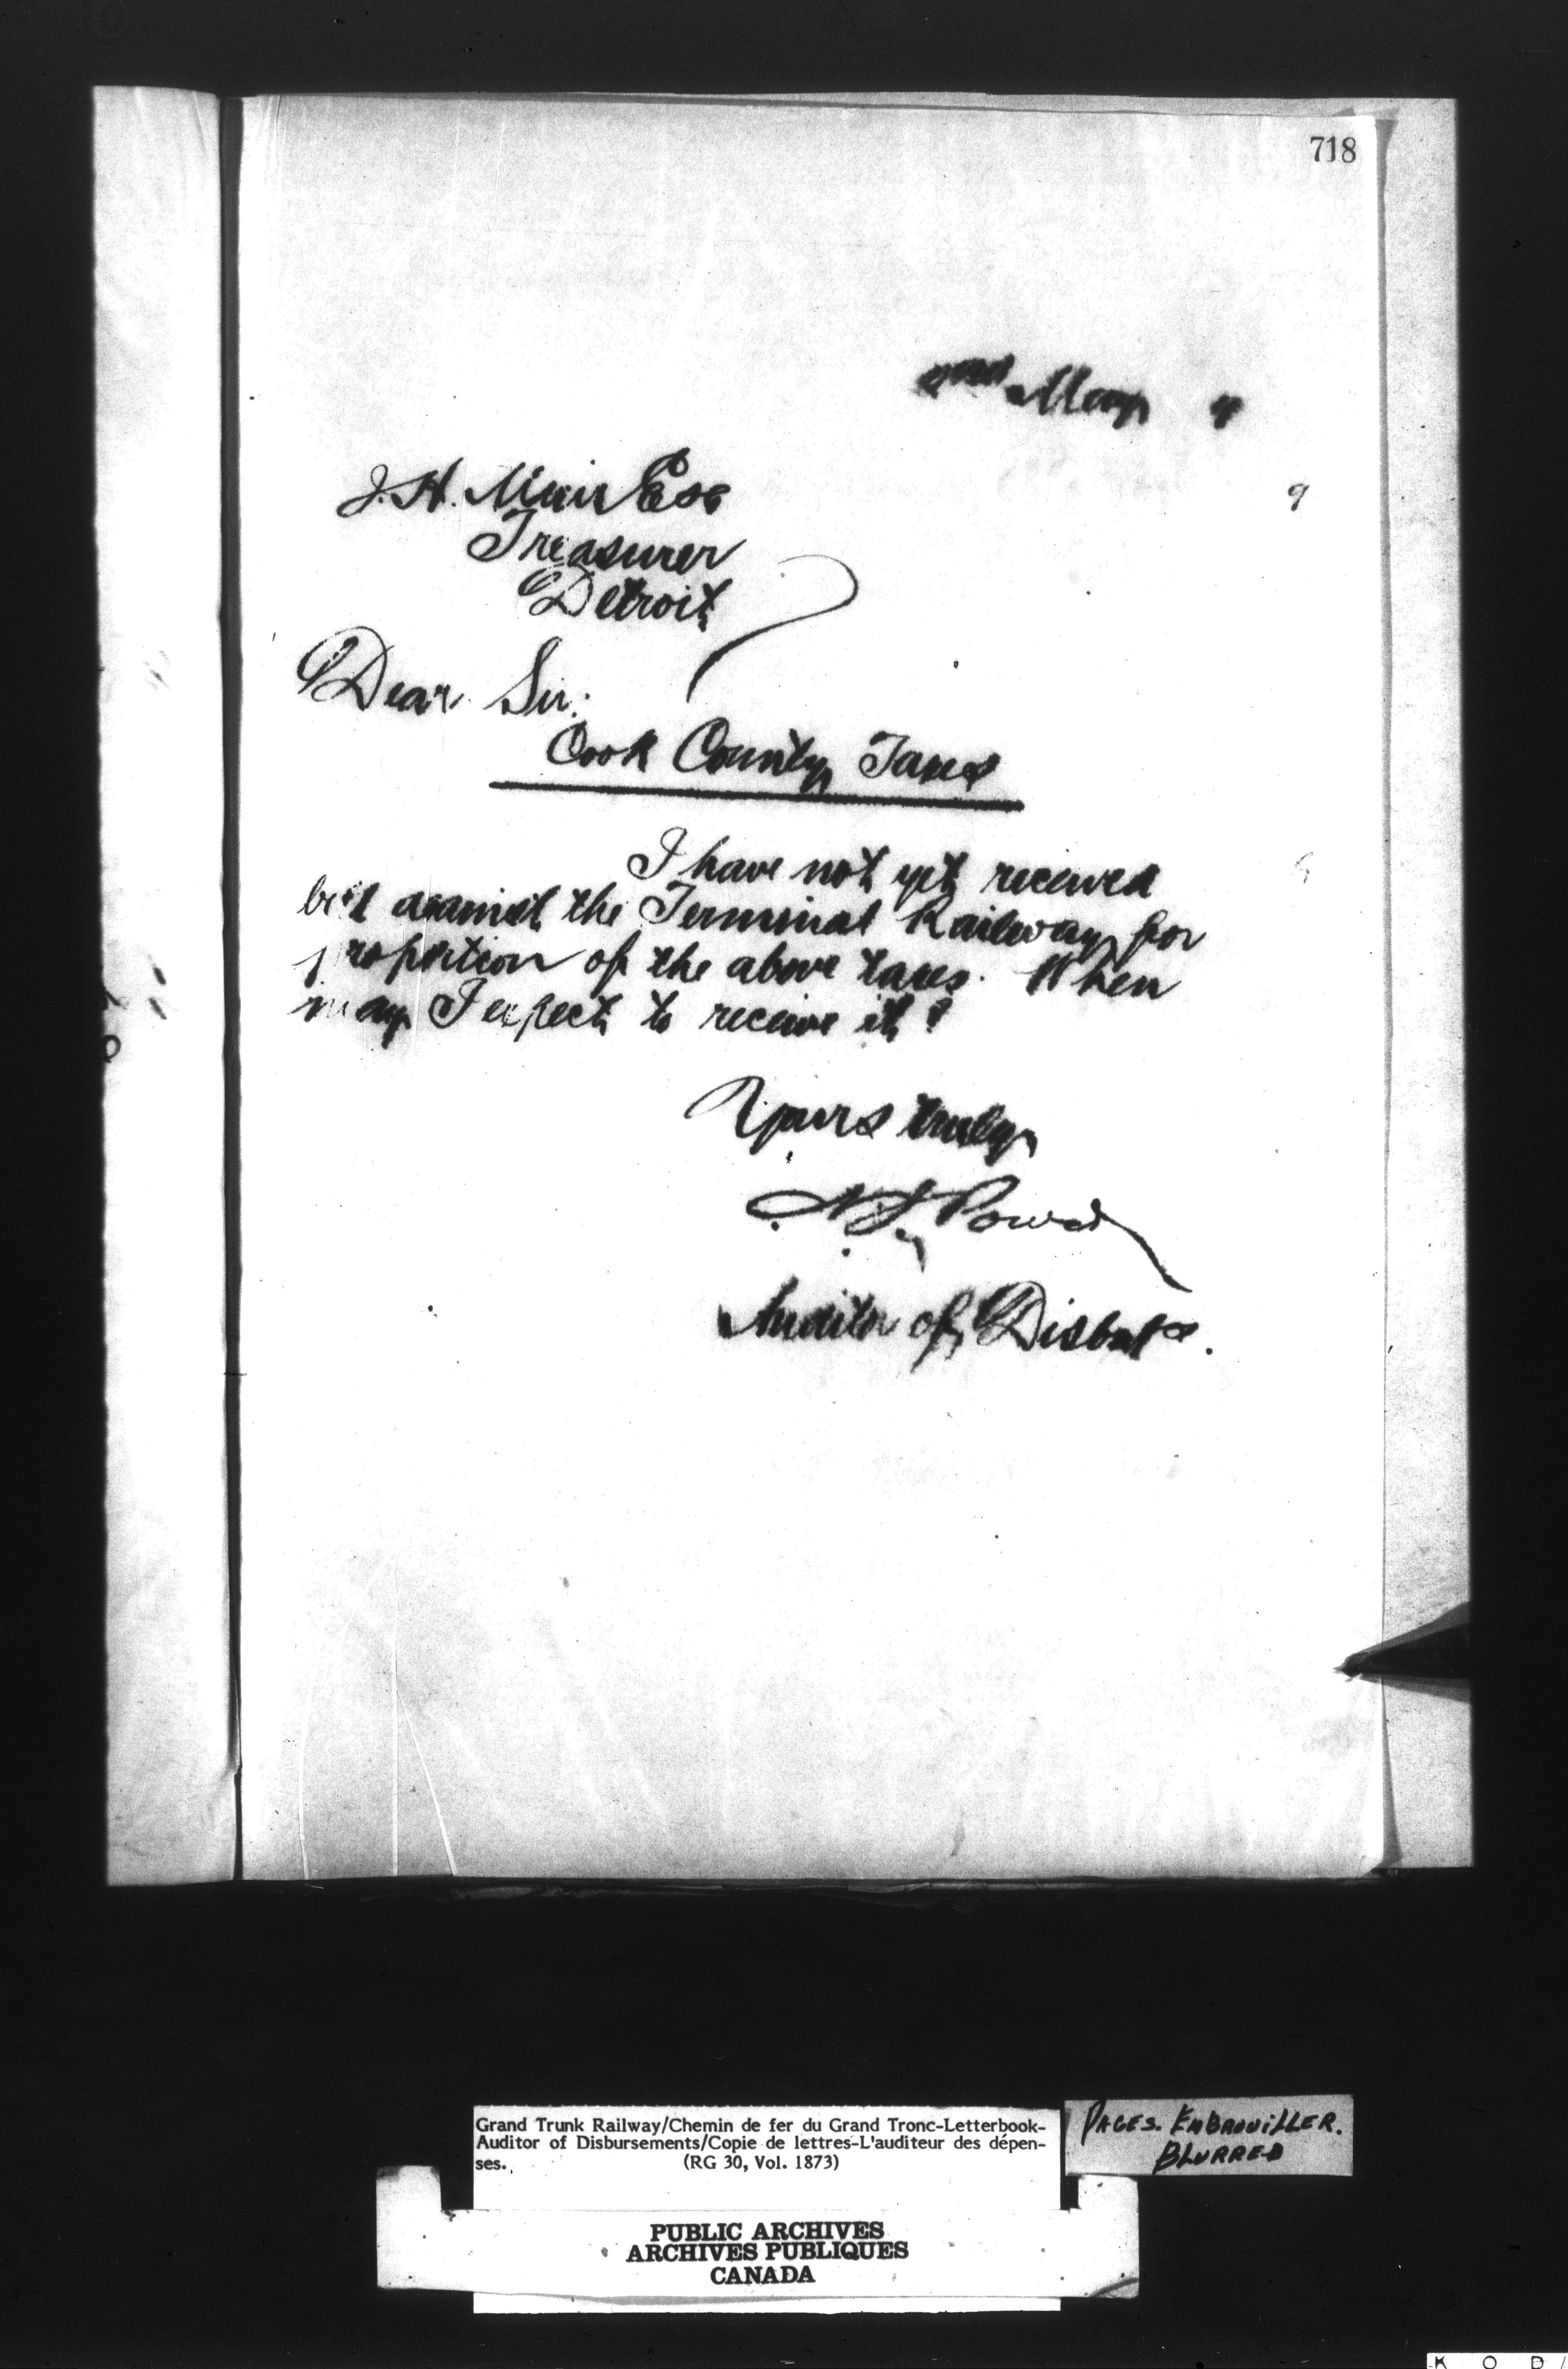 718
2nd May 9
9
J. H. Muir Esq
Treasurer
Detroit
Dear Sir:
Cook County Taxes
I have not yet received
bill against the Terminal Railway for
proportion of the above taxes. When
may I expect to receive it?
Yours truly
Power
Auditor of Disbuts.
Grand Trunk Railway/Chemin de fer du Grand Tronc-Letterbook-
Auditor of Disbursements/Copie de lettres-L'auditeur des dépen-
ses. (RG 30, Vol. 1873)
PAGES. EMBROUILLER.
BLURRED
PUBLIC ARCHIVES
ARCHIVES PUBLIQUES
CANADA
K O D